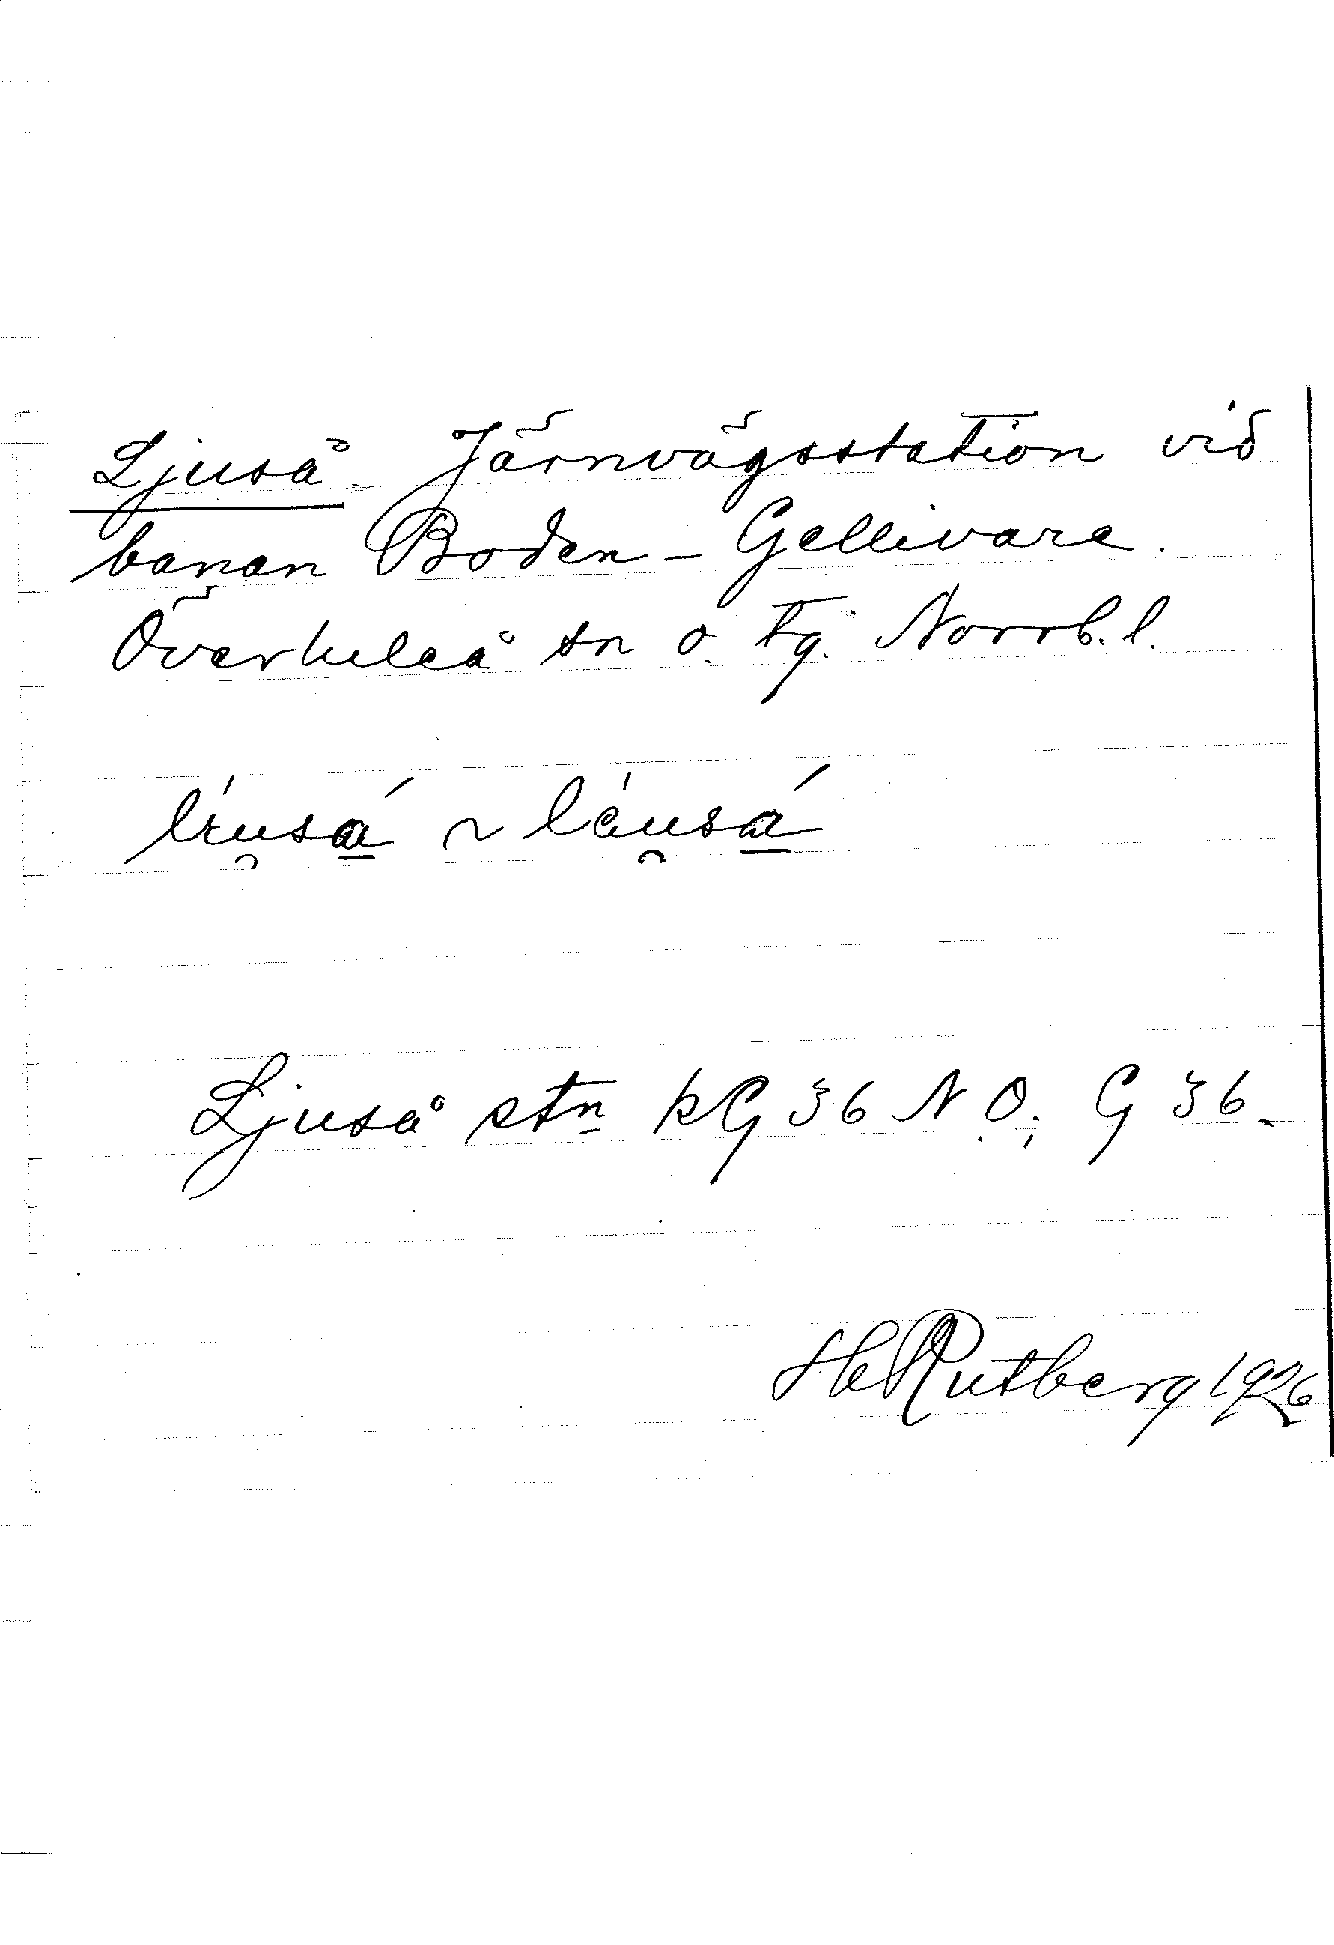 Ljuså. Järnvägsstation vid
banan Boden – Gellivare.
Överluleå sn o. tg. Norrb. l.
Ljuså stn kG 36 N.O; G 36.
H Rutberg 1926